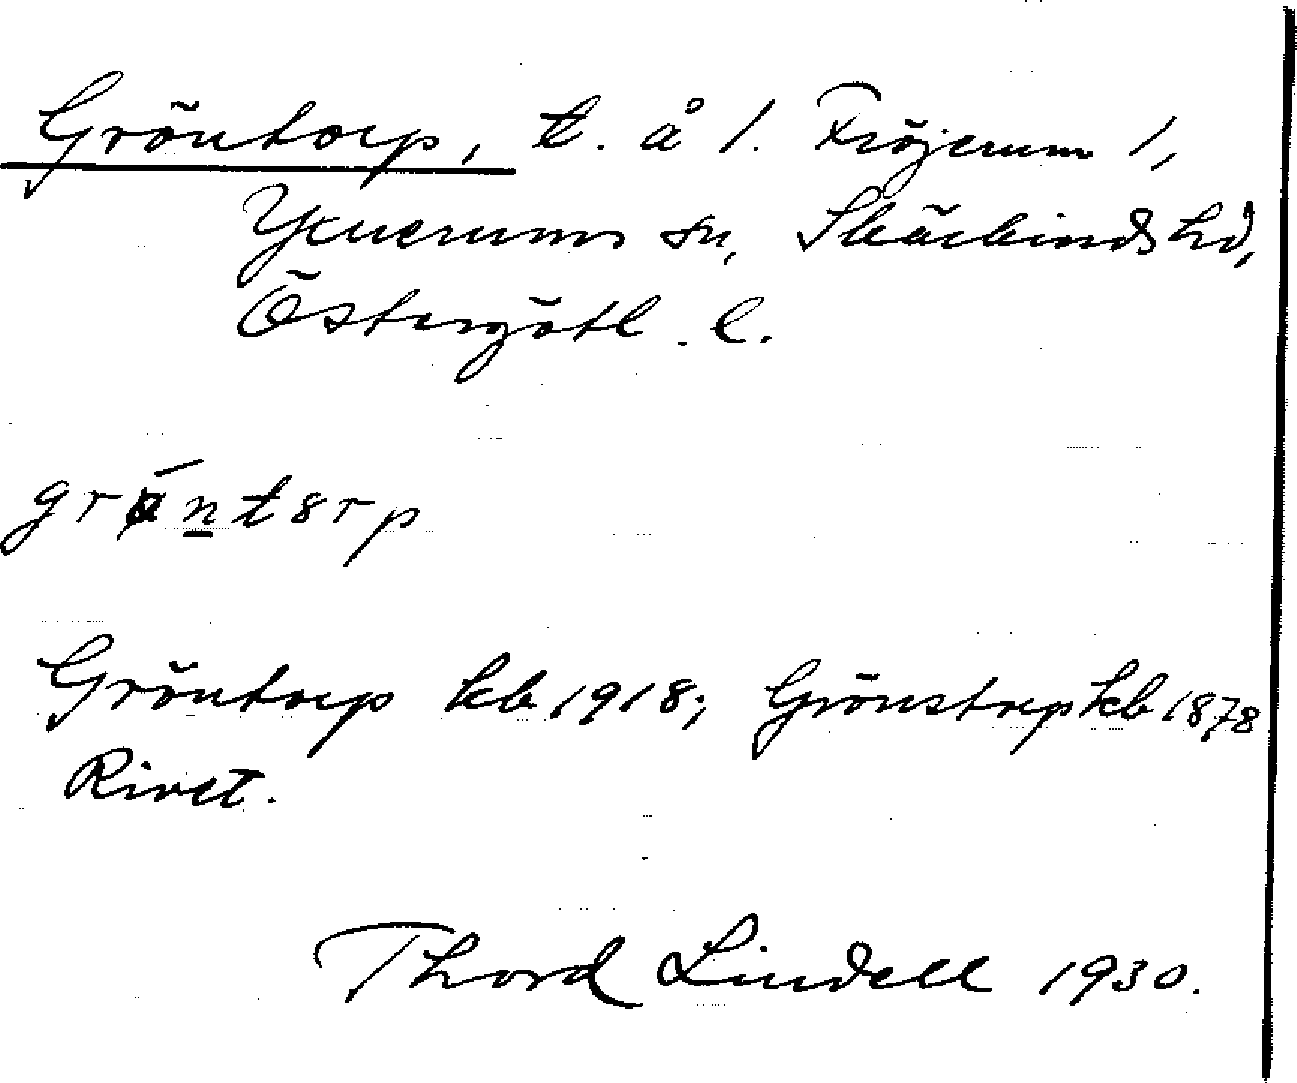 Gröntorp, t. å l. Fröjerum 1,
Yxnerums sn, Skärkinds hd,
Östergötl. l.
grǿntsrp
Gröntorp kb 1918; Grönstorp kb 1878
Rivet.
Thord Lindell 1930.